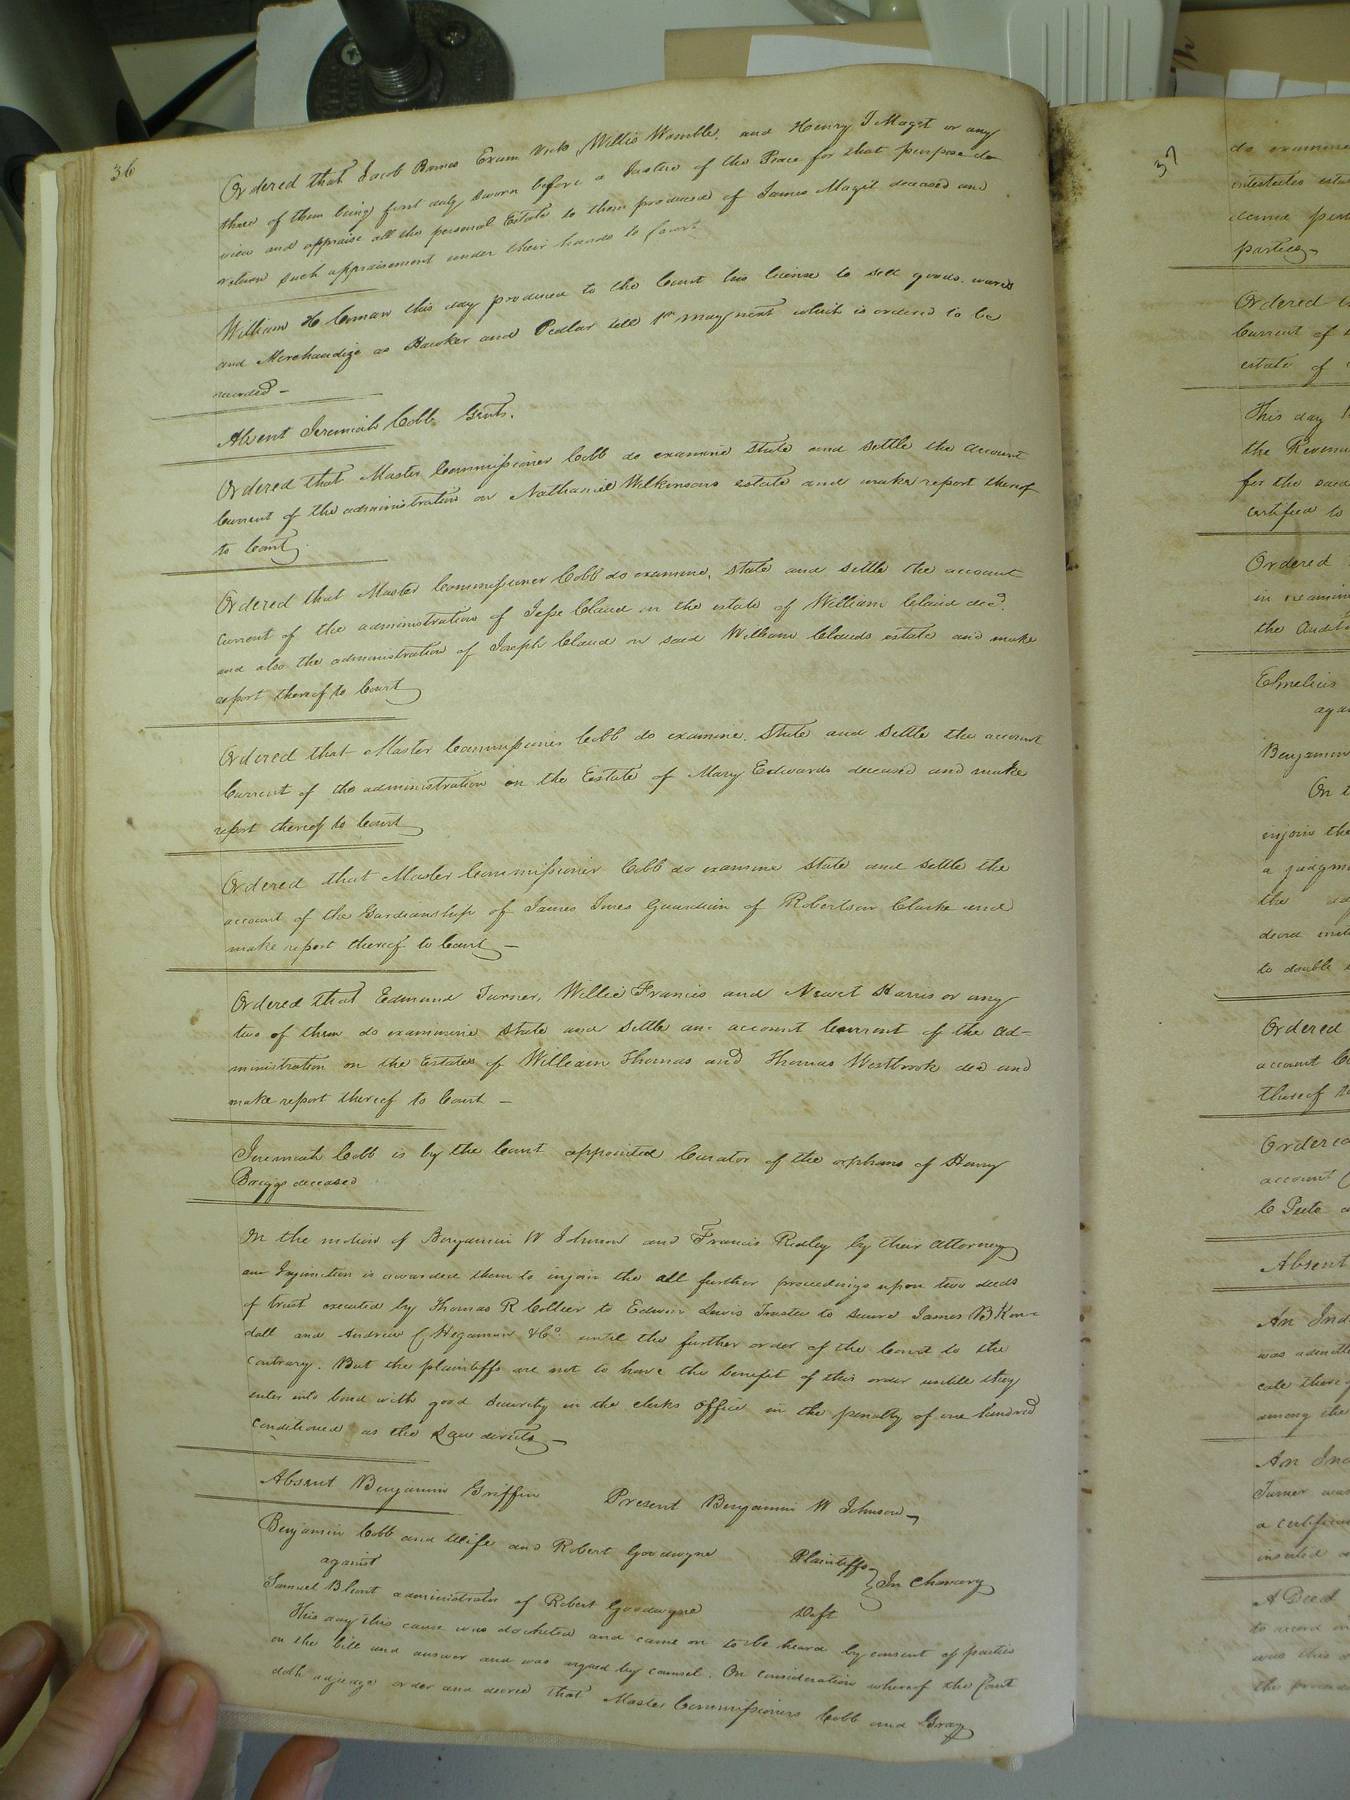 36
Ordered that Jacob Barnes Exum Vick, Willis Womble, and Henry J Maget or any
three of them being first duly sworn before a Justice of the Peace for that purpose do
view and appraise all the personal Estate to them produced of James Magit deceased and
return such appraisement under their hands to Court
William H this day produced to the Court his license to sell goods, wares
and Merchandize as Hawker and Pedlar till 1st may next which is ordered to be
recorded—
Absent Jeremiah Cobb Gent.
Ordered that Master Commissioner Cobb do examine state and settle the account
Current of the administration on Nathaniel Wilkinsons estate and make report thereof
to Court
Ordered that Master Commissioner Cobb do examine, state and settle the account
current of the administration of Jesse Claud on the estate of William Claud decd.
and also the administration of Joseph Claud on said William Clauds estate and make
report thereof to Court
Ordered that Master Commissioner Cobb do examine, state and settle the account
Current of the administration on the Estate of Mary Edwards deceased and make
report thereof to Court
Ordered that Master Commissioner Cobb do examine state and settle the
account of the Gardianship of James Jones Guardian of Robertson Clarke and
make report thereof to Court—
Ordered that Edmund Turner, Willie Francis and Newit Harris or any
two of them do exammine state and settle an account Current of the ad-
ministration on the Estates of William Thomas and Thomas Westbrook decd and
make report thereof to Court—
Jeremiah Cobb is by the Court appointed Curator of the orphans of Henry
Briggs deceased
On the motion of Benjamin W Johnson and Francis Ridley by their attorney
an Injunction is awarded them to injoin the all further proceedings upon two deeds
of trust executed by Thomas R Collier to Edwin Lewis Trustee to secure James B Ken-
dall and Andrew C Hegamin & Co. until the further order of the Court to the
contrary. But the plaintiffs are not to have the benefit of this order untill they
enter into bond with good security in the clerks office in the penalty of one hundred
conditioned as the Law directs—
Absent Benjamin Griffin Present Benjamin W Johnson—
Benjamin Cobb and Wife and Robert Goodwyne Plaintiffs
against } In Chancery
Samuel Blunt administrator of Robert Goodwyne Deft
This day this cause was docketed and came on to be heard by consent of parties
on the bill and answer and was argued by counsel. On consideration whereof the Court
doth adjudge order and decree that Master Commissioners Cobb and Gray
37
do examine
intestates esta
parties—
Ordered t
Current of
estate of
This day
the Revenu
for the said
certified to
Ordered
in examin
the Audit
aga
Benjamin
On t
injoin the
a judgm
the
to double
Ordered
account C
thereof
Ordered
account
C Peete
Absent
An Ind
was admitte
among the
An Ind
Turner was
a certifica
inserted
A Deed
to record
was this
the